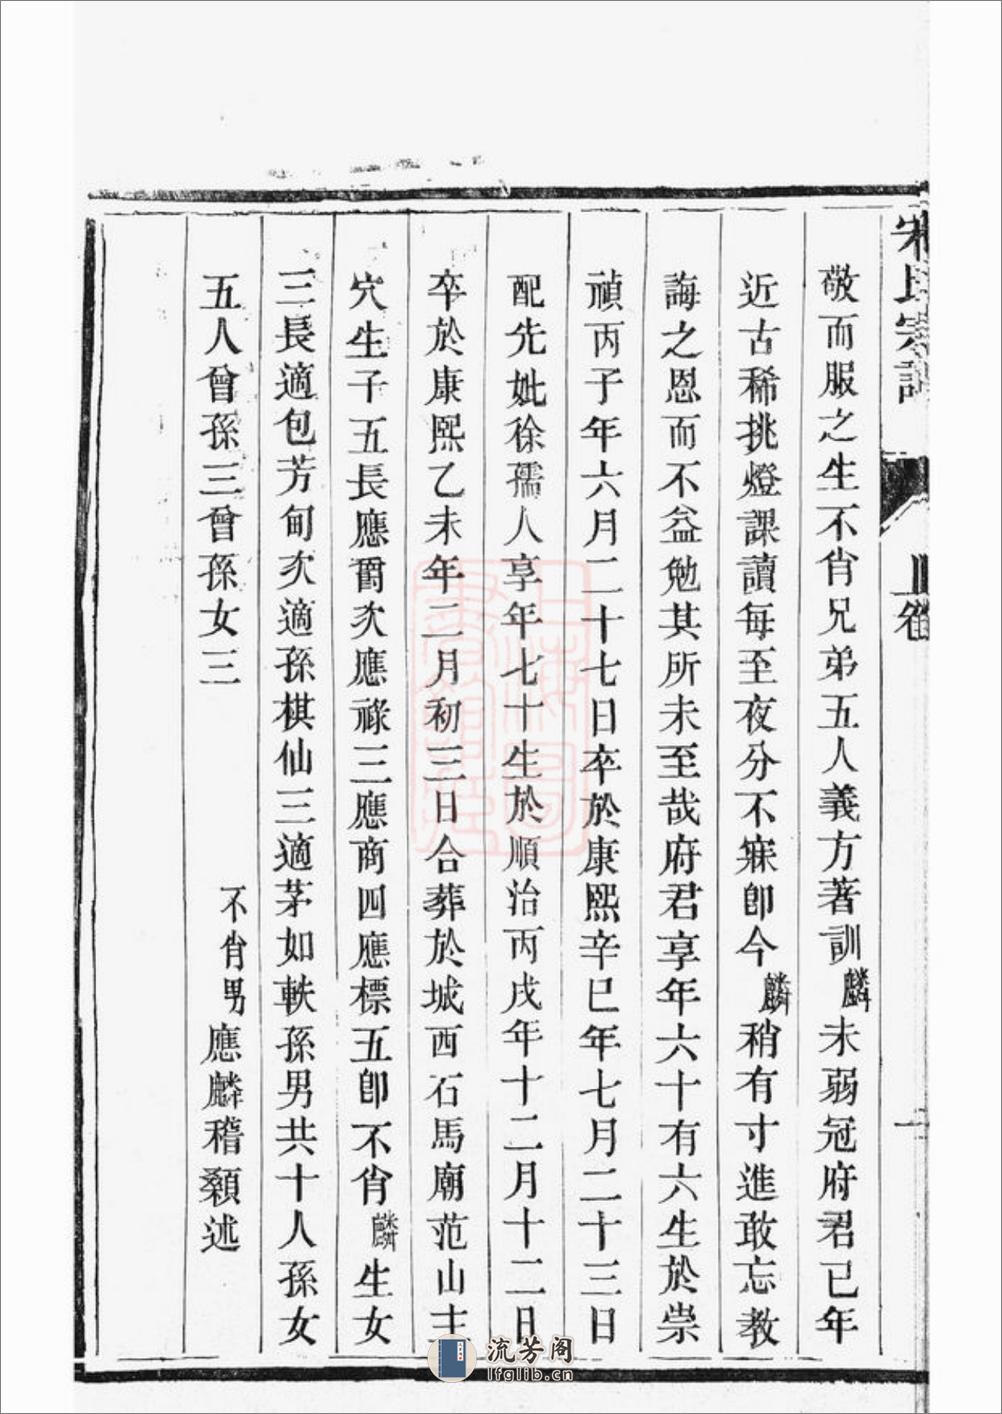 宋氏宗譜
卷
敬而服之生不肖兄弟五人義方著訓麟未弱冠府君已年
近古稀挑燈課讀每至夜分不寐卽今麟稍有寸進敢忘教
誨之恩而不益勉其所未至哉府君享年六十有六生於崇
禎丙子年六月二十七日卒於康熙辛巳年七月二十三日
配先妣徐孺人享年七十生於順治丙戌年十二月十二日
卒於康熙乙未年二月初三日合葬於城西石馬廟范山主
穴生子五長應爵次應祿三應商四應標五卽不肖麟生女
三長適包芳甸次適孫棋仙三適茅如軼孫男共十人孫女
五人曾孫三曾孫女三
不肖男應麟稽顙述
上海圖書館藏
流芳阁
lfglib.cn